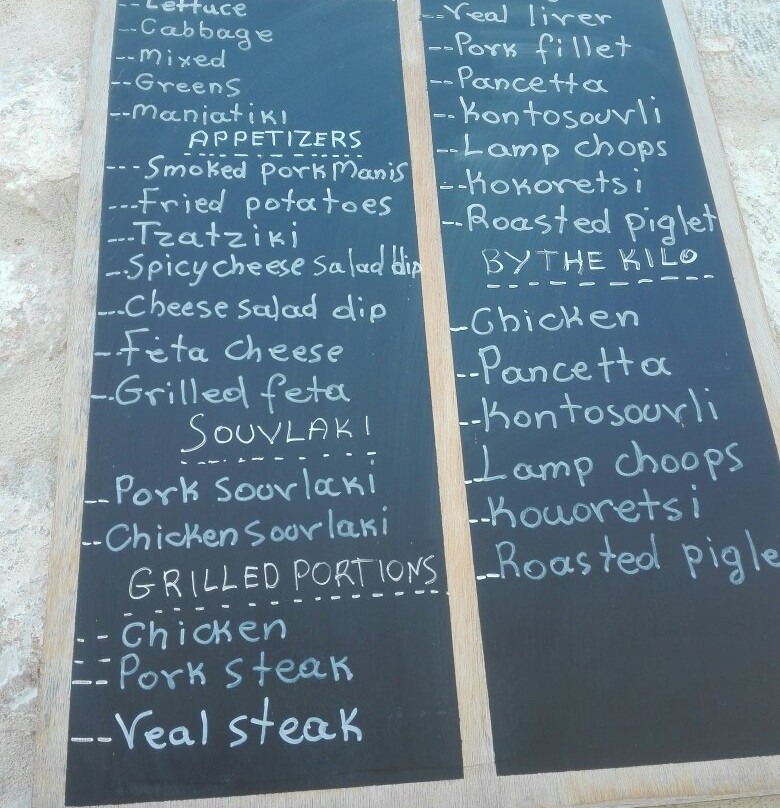 --Lettuce
--Cabbage
--Mixed
--Greens
--Maniatiki
APPETIZERS
---Smoked pork Manis
---Fried potatoes
---Tzatziki
--Spicy cheese salad dip
--Cheese salad dip
--Feta cheese
--Grilled feta
SOUVLAKI
--Pork souvlaki
--Chicken souvlaki
GRILLED PORTIONS
-- Chicken
-- Pork steak
--Veal steak
--Veal liver
--Pork fillet
--Pancetta
--Kontosouvli
--Lamp chops
--Kokoretsi
--Roasted piglet
BY THE KILO
--Chicken
--Pancetta
--Kontosouvli
--Lamp choops
--Kouoretsi
--Roasted pigle